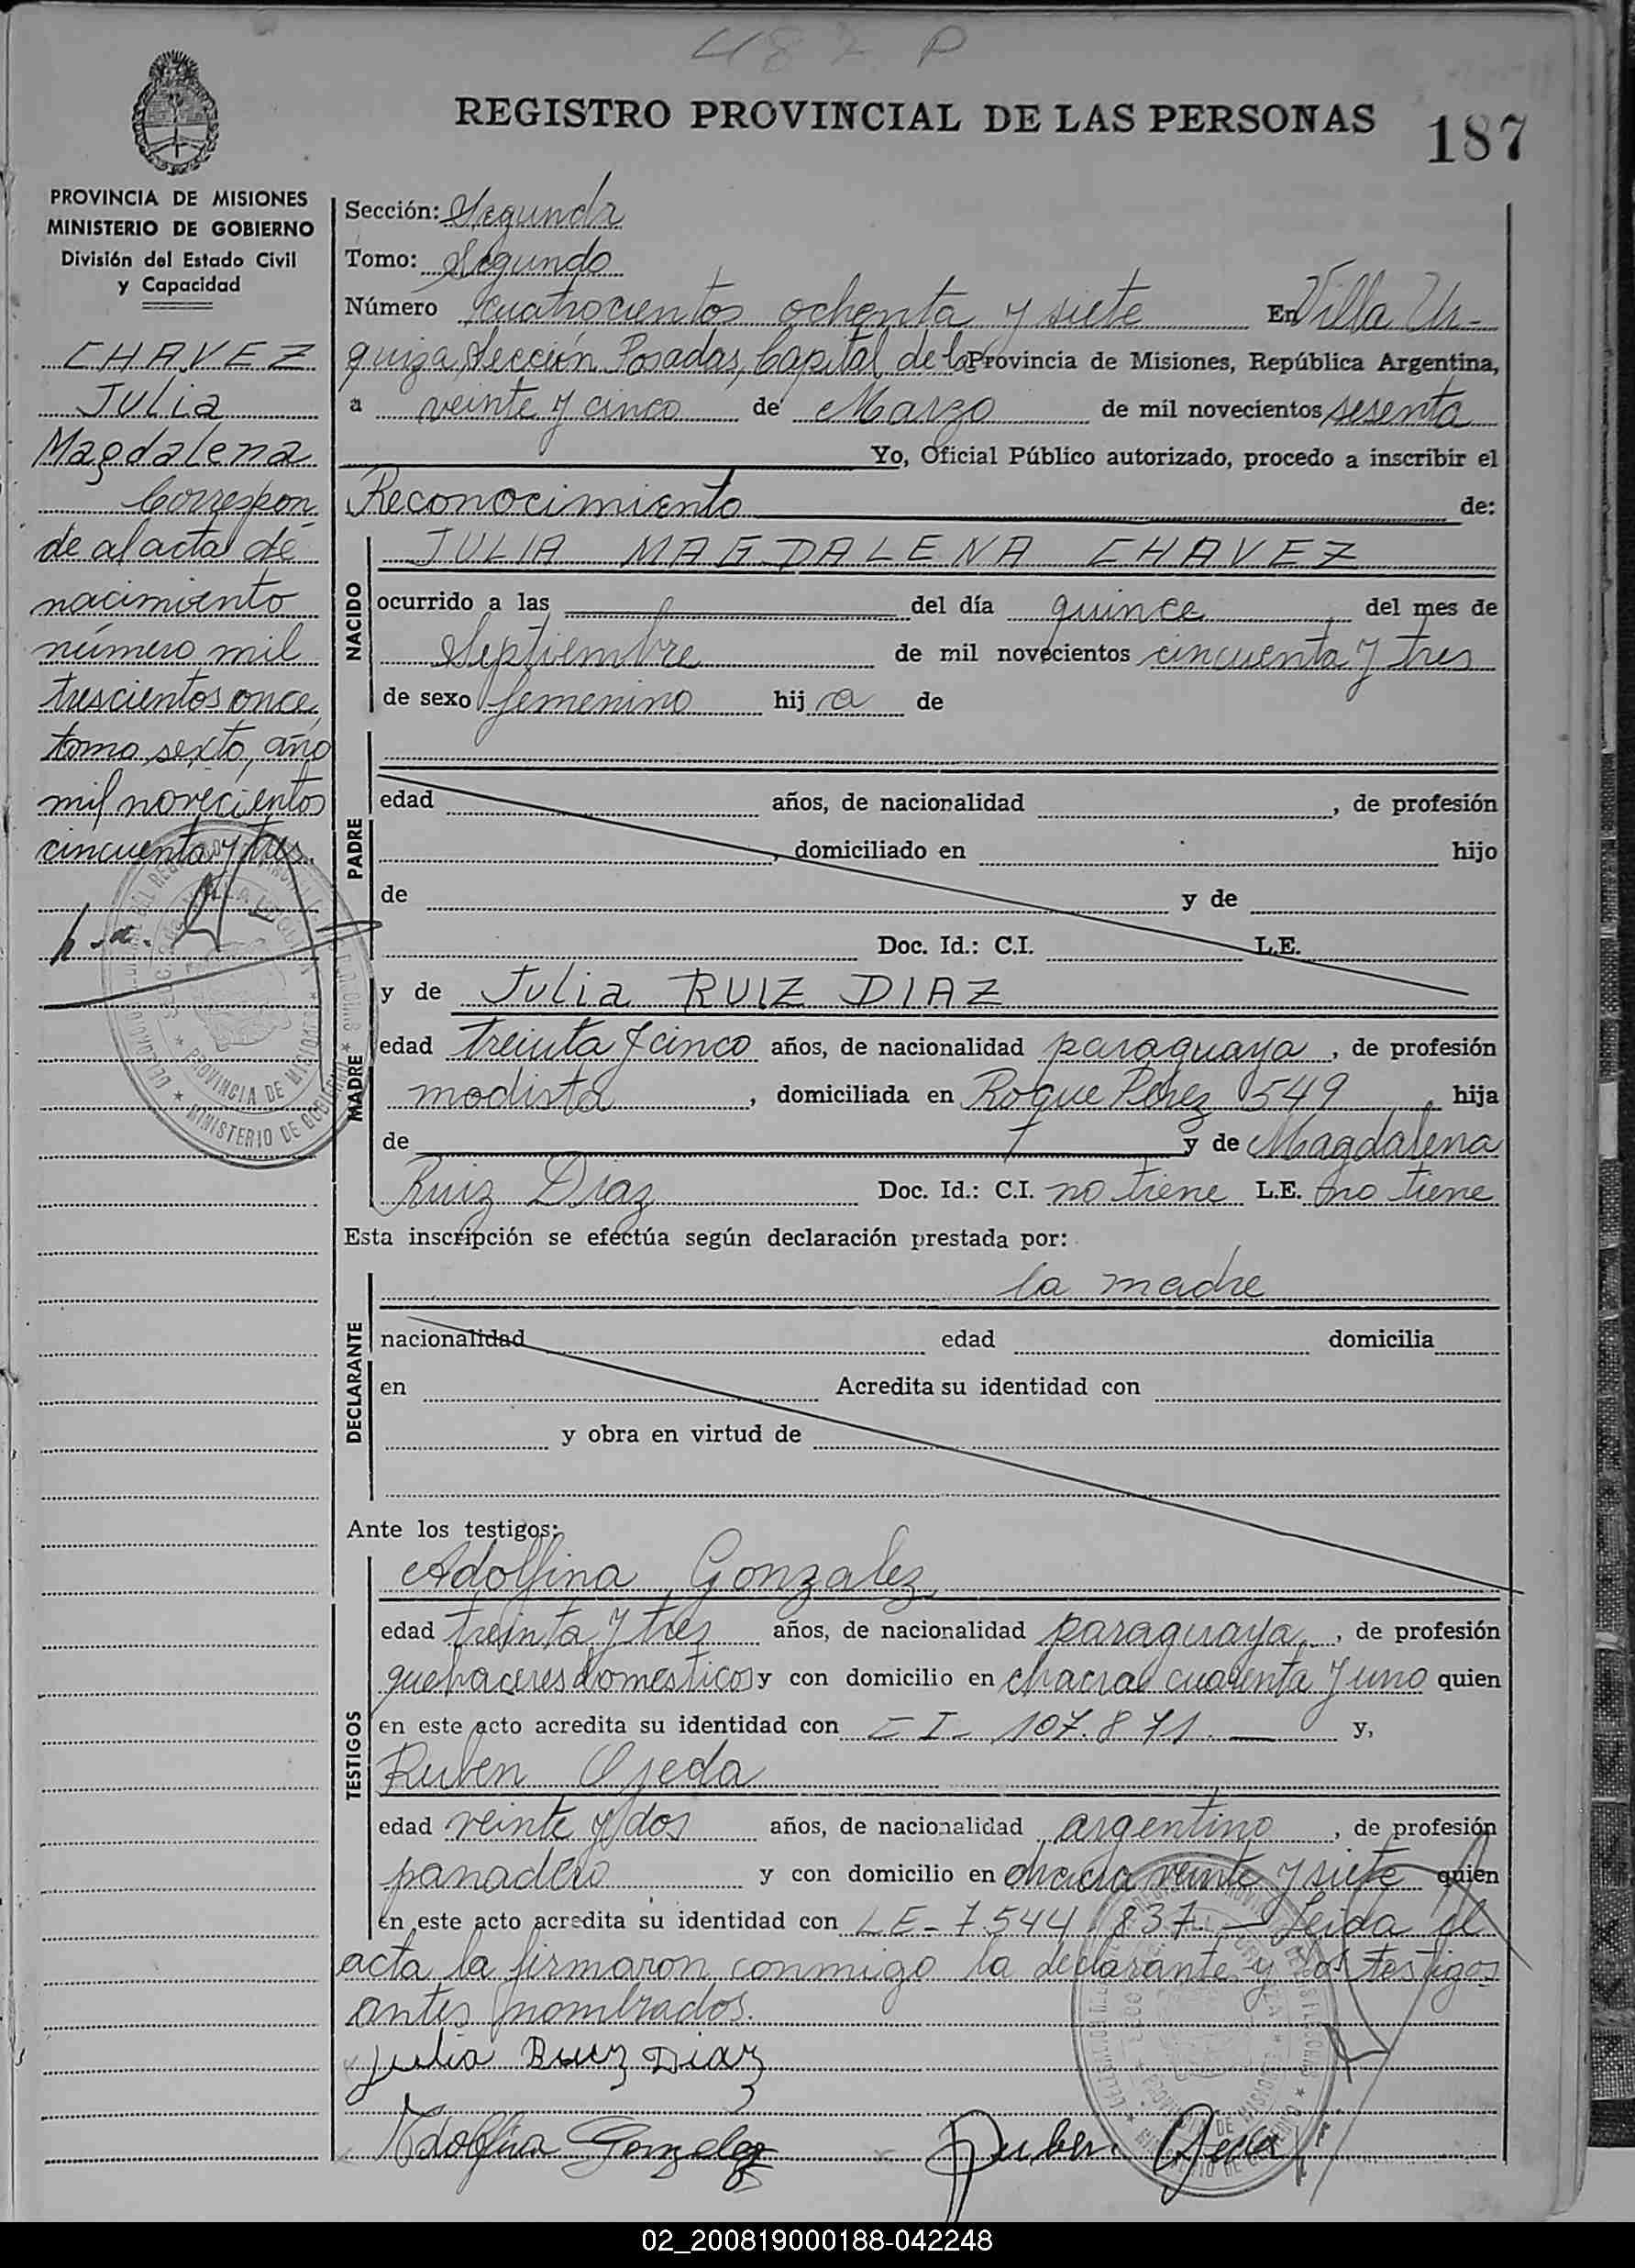 487 P
REGISTRO PROVINCIAL DE LAS PERSONAS
187
PROVINCIA DE MISIONES
MINISTERIO DE GOBIERNO
División del Estado Civil
y Capacidad
CHAVEZ
Julia
Magdalena
Correspon
de al acta de
nacimiento
número mil
trescientos once,
tomo sexto, año
mil novecientos
cincuenta y tres.
Sección: Segunda
Tomo: Segundo
Número cuatrocientos ochenta y siete En Villa Ur-
quiza, Sección Posadas, Capital de la Provincia de Misiones, República Argentina,
a veinte y cinco de Marzo de mil novecientos sesenta
Yo, Oficial Público autorizado, procedo a inscribir el
Reconocimiento de:
NACIDO
JULIA MAGDALENA CHAVEZ
ocurrido a las del día quince del mes de
Septiembre de mil novecientos cincuenta y tres
de sexo femenino hij a de
PADRE
edad años, de nacionalidad , de profesión
, domiciliado en hijo
de y de
Doc. Id.: C.I. L.E.
MADRE
y de Julia RUIZ DIAZ
edad treinta y cinco años, de nacionalidad paraguaya, de profesión
modista, domiciliada en Roque Perez 549 hija
de y de Magdalena
Ruiz Diaz Doc. Id.: C.I. no tiene L.E. no tiene
Esta inscripción se efectúa según declaración prestada por:
DECLARANTE
la madre
nacionalidad edad domicilia
en Acredita su identidad con
y obra en virtud de
Ante los testigos:
TESTIGOS
Adolfina Gonzalez
edad treinta y tres años, de nacionalidad paraguaya, de profesión
quehaceres domesticos y con domicilio en chacra cuarenta y uno quien
en este acto acredita su identidad con CI- 107.871. y,
Ruben Ojeda
edad veinte y dos años, de nacionalidad argentino, de profesión
panadero y con domicilio en chacra veinte y siete quien
en este acto acredita su identidad con LE- 7.544.837.- Leida el
acta la firmaron conmigo la declarante y los testigos
antes nombrados.
Julia Ruiz Diaz
Adolfina Gonzalez Ruben Ojeda
02_200819000188-042248